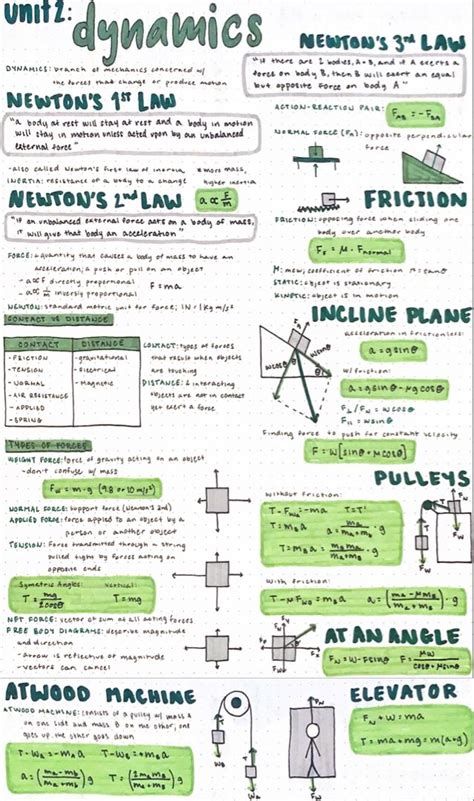 unit 2:
dynamics
DYNAMICS: branch of mechanics concerned w/
the forces that change or produce motion
NEWTON'S 1ST LAW
"a body at rest will stay at rest and a body in motion
will stay in motion unless acted upon by an unbalanced
external force"
-also called Newton's first law of inertia
INERTIA: resistance of a body to a change
* more mass,
higher inertia
NEWTON'S 2nd LAW
a ∝ F/m
"if an unbalanced external force acts on a body of mass,
it will give that body an acceleration"
FORCE: a quantity that causes a body of mass to have an
acceleration; a push or pull on an object
- a∝F directly proportional
F=ma
- a∝ 1/m inversly proportional
NEWTON: standard metric unit for force; 1N=1kg m/s²
CONTACT VS DISTANCE
CONTACT
DISTANCE
-FRICTION
-TENSION
-NORMAL
-AIR RESISTANCE
-APPLIED
-SPRING
-gravitational
-Electrical
-Magnetic
CONTACT: types of forces
that result when objects
are touching
DISTANCE: 2 interacting
objects are not in contact
yet exert a force
TYPES OF FORCES
WEIGHT FORCE: force of gravity acting on an object
-don't confuse w/ mass
Fw = m·g (9.8 or 10 m/s²)
NORMAL FORCE: support force (Newton's 3rd)
APPLIED FORCE: force applied to an object by a
person or another object
TENSION: Force transmitted through a string
pulled tight by forces acting on
opposite ends
Symetric Angles:
T = mg/2cosθ
Vertical:
T=mg
NET FORCE: vector sum of all acting forces
FREE BODY DIAGRAMS: describe magnitude
and direction
-arrow is reflective of magnitude
-vectors can cancel
NEWTON'S 3rd LAW
"if there are 2 bodies, A+B, and if A exerts a
force on body B, then B will exert an equal
but opposite force on body A"
ACTION-REACTION PAIR:
F_AB = -F_BA
NORMAL FORCE (Fn): opposite perpendicular
force
FRICTION
FRICTION: opposing force when sliding one
body over another body
Ff = μ · Fnormal
STATIC: object is stationary
KINETIC: object is in motion
INCLINE PLANE
acceleration in frictionless:
a = gsinθ
w/ friction:
a = gsinθ - μgcosθ
F⊥/FN = wcosθ
F|| = wsinθ
Finding force to push for constant velocity
F = W[sinθ + μcosθ]
wcosθ
wsinθ
θ
PULLEYS
without friction:
With friction:
AT AN ANGLE
FN = W - Fsinθ
F = μW/cosθ + μsinθ
ATWOOD MACHINE
ATWOOD MACHINE: consists of a pulley w/ mass A
on one side and mass B on the other; one
goes up, the other goes down
T-WA = -mAa
T-WB = +mBa
ELEVATOR
FN + W = ma
T = ma + mg = m(a+g)